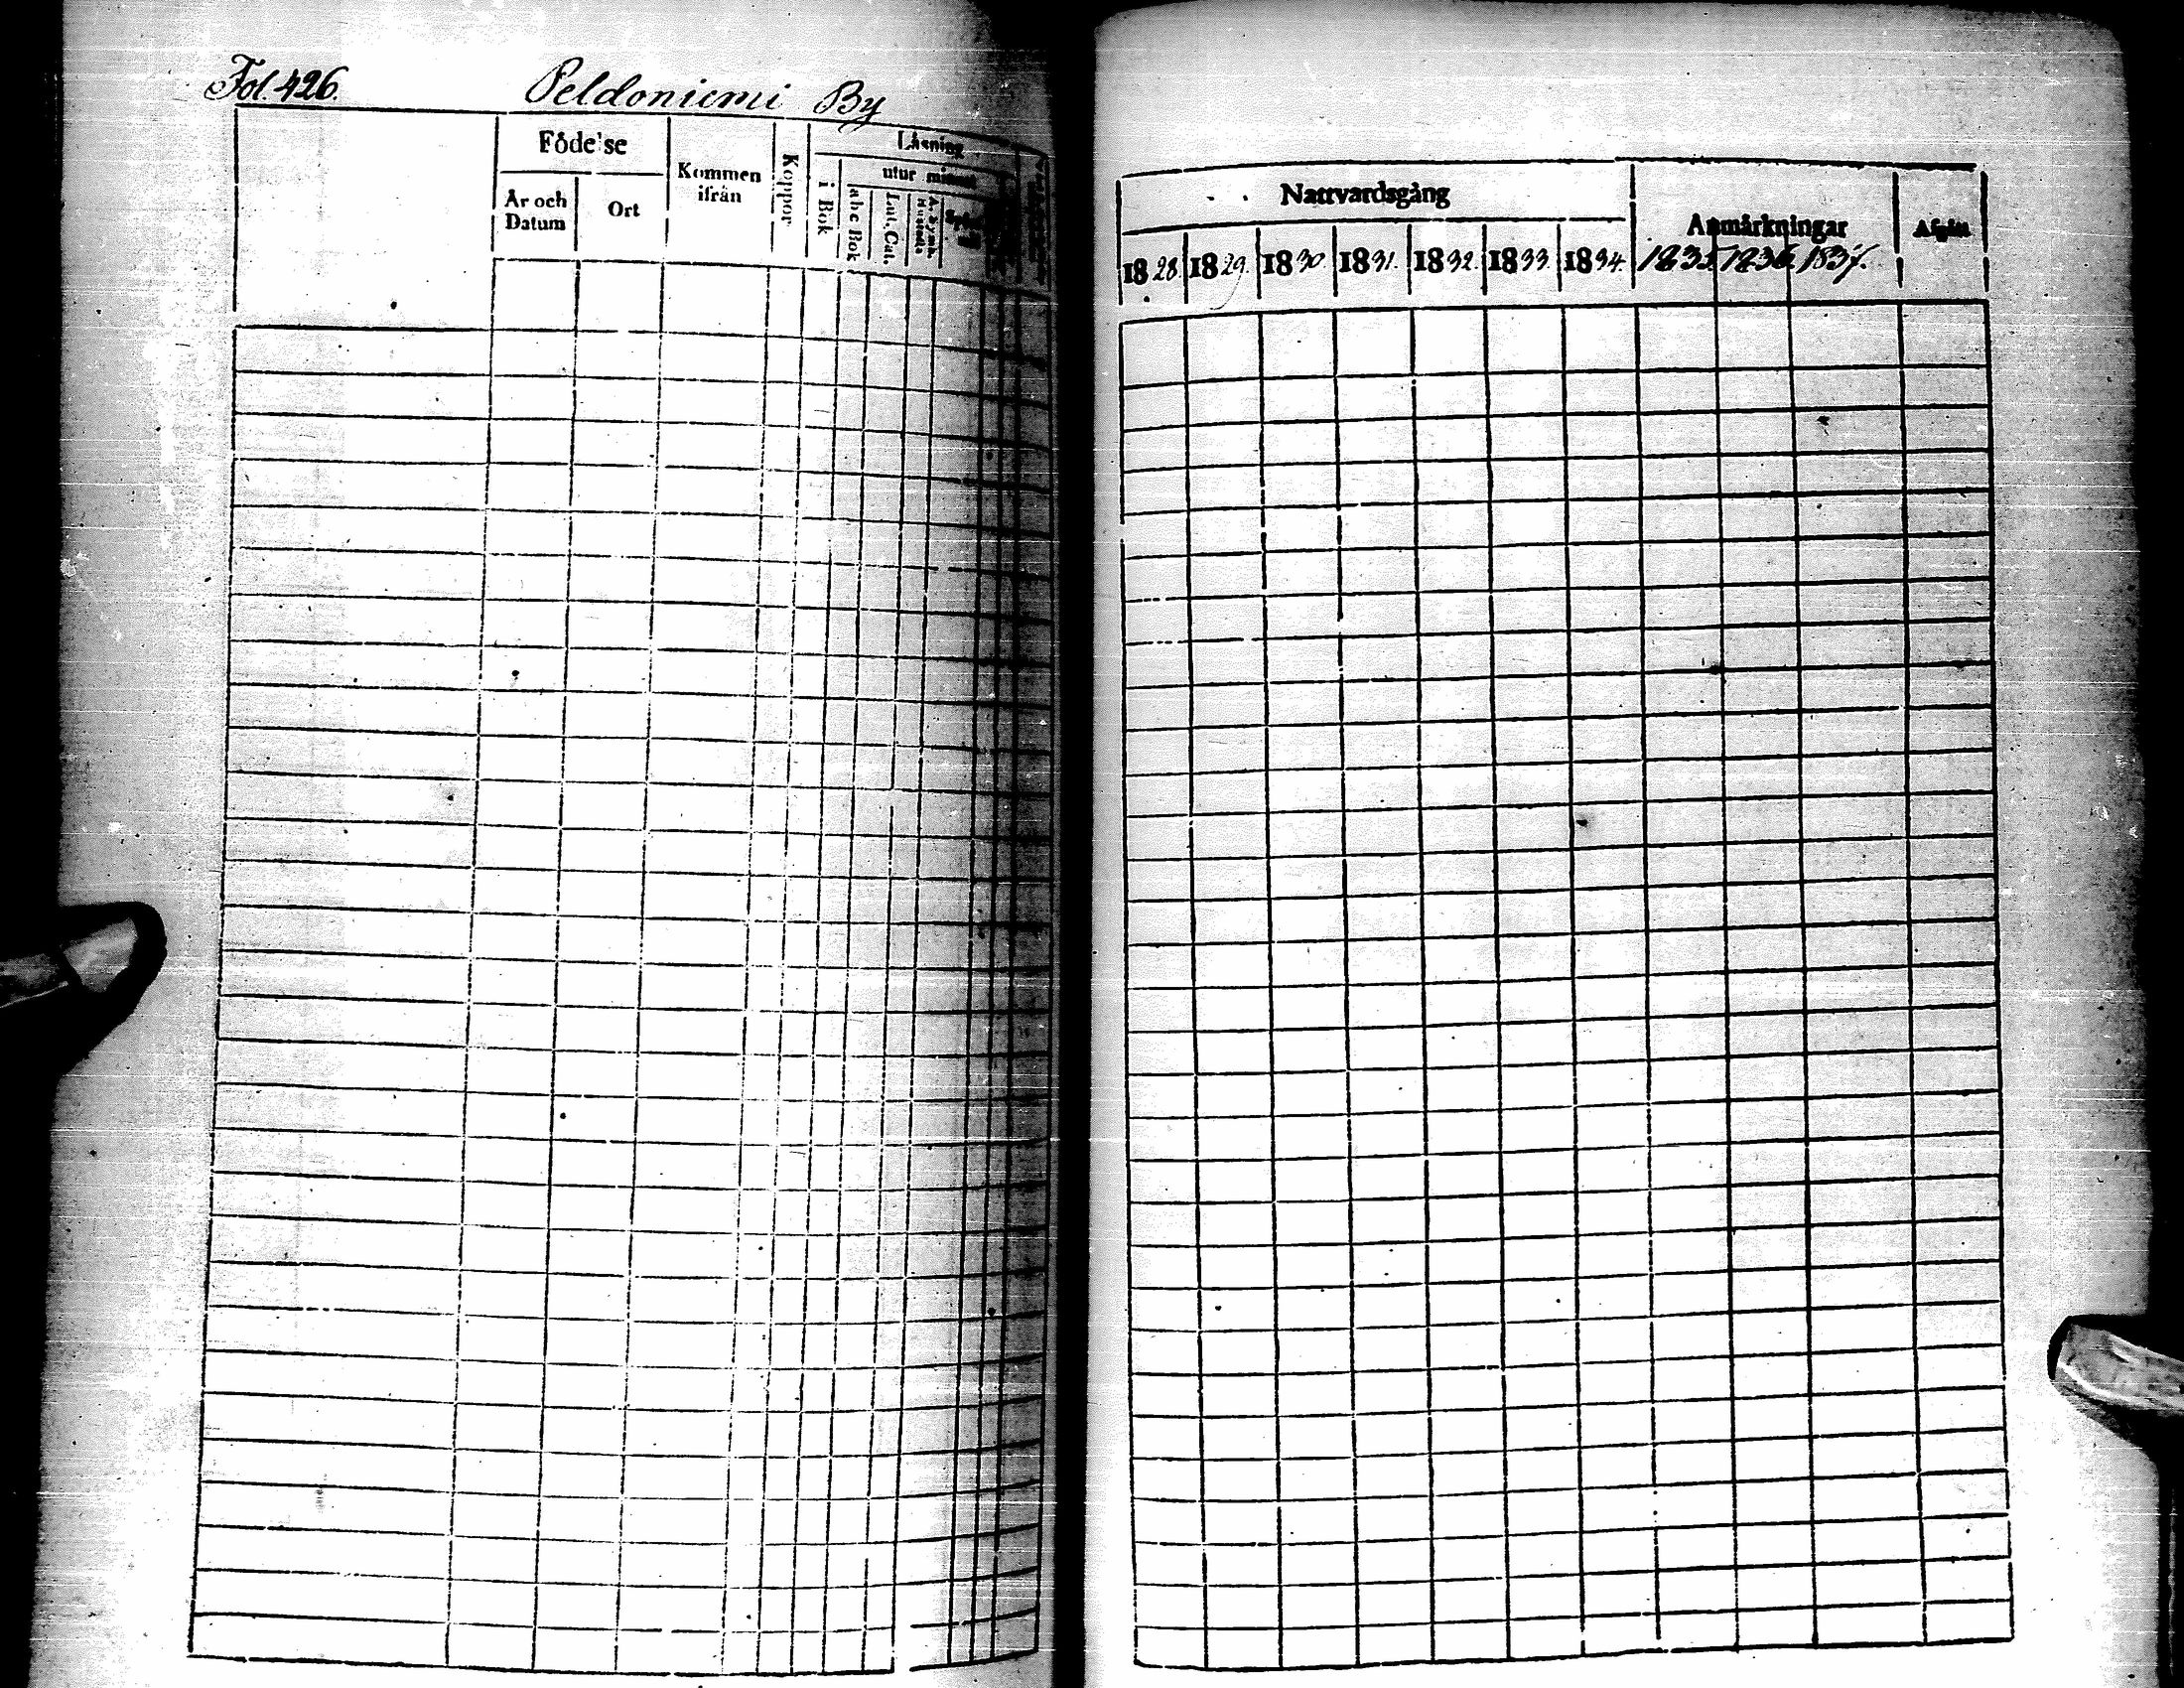 Fol. 426. Peldoniemi By
Födelse
År och Datum
Ort
Kommen ifrån
Koppor
Läsning
i Bok
utur minnet
abc Bok
Lut. Cat.
Nattvardsgång
1828. 1829. 1830. 1831. 1832. 1833. 1834.
Anmärkningar
1835. 1836. 1837.